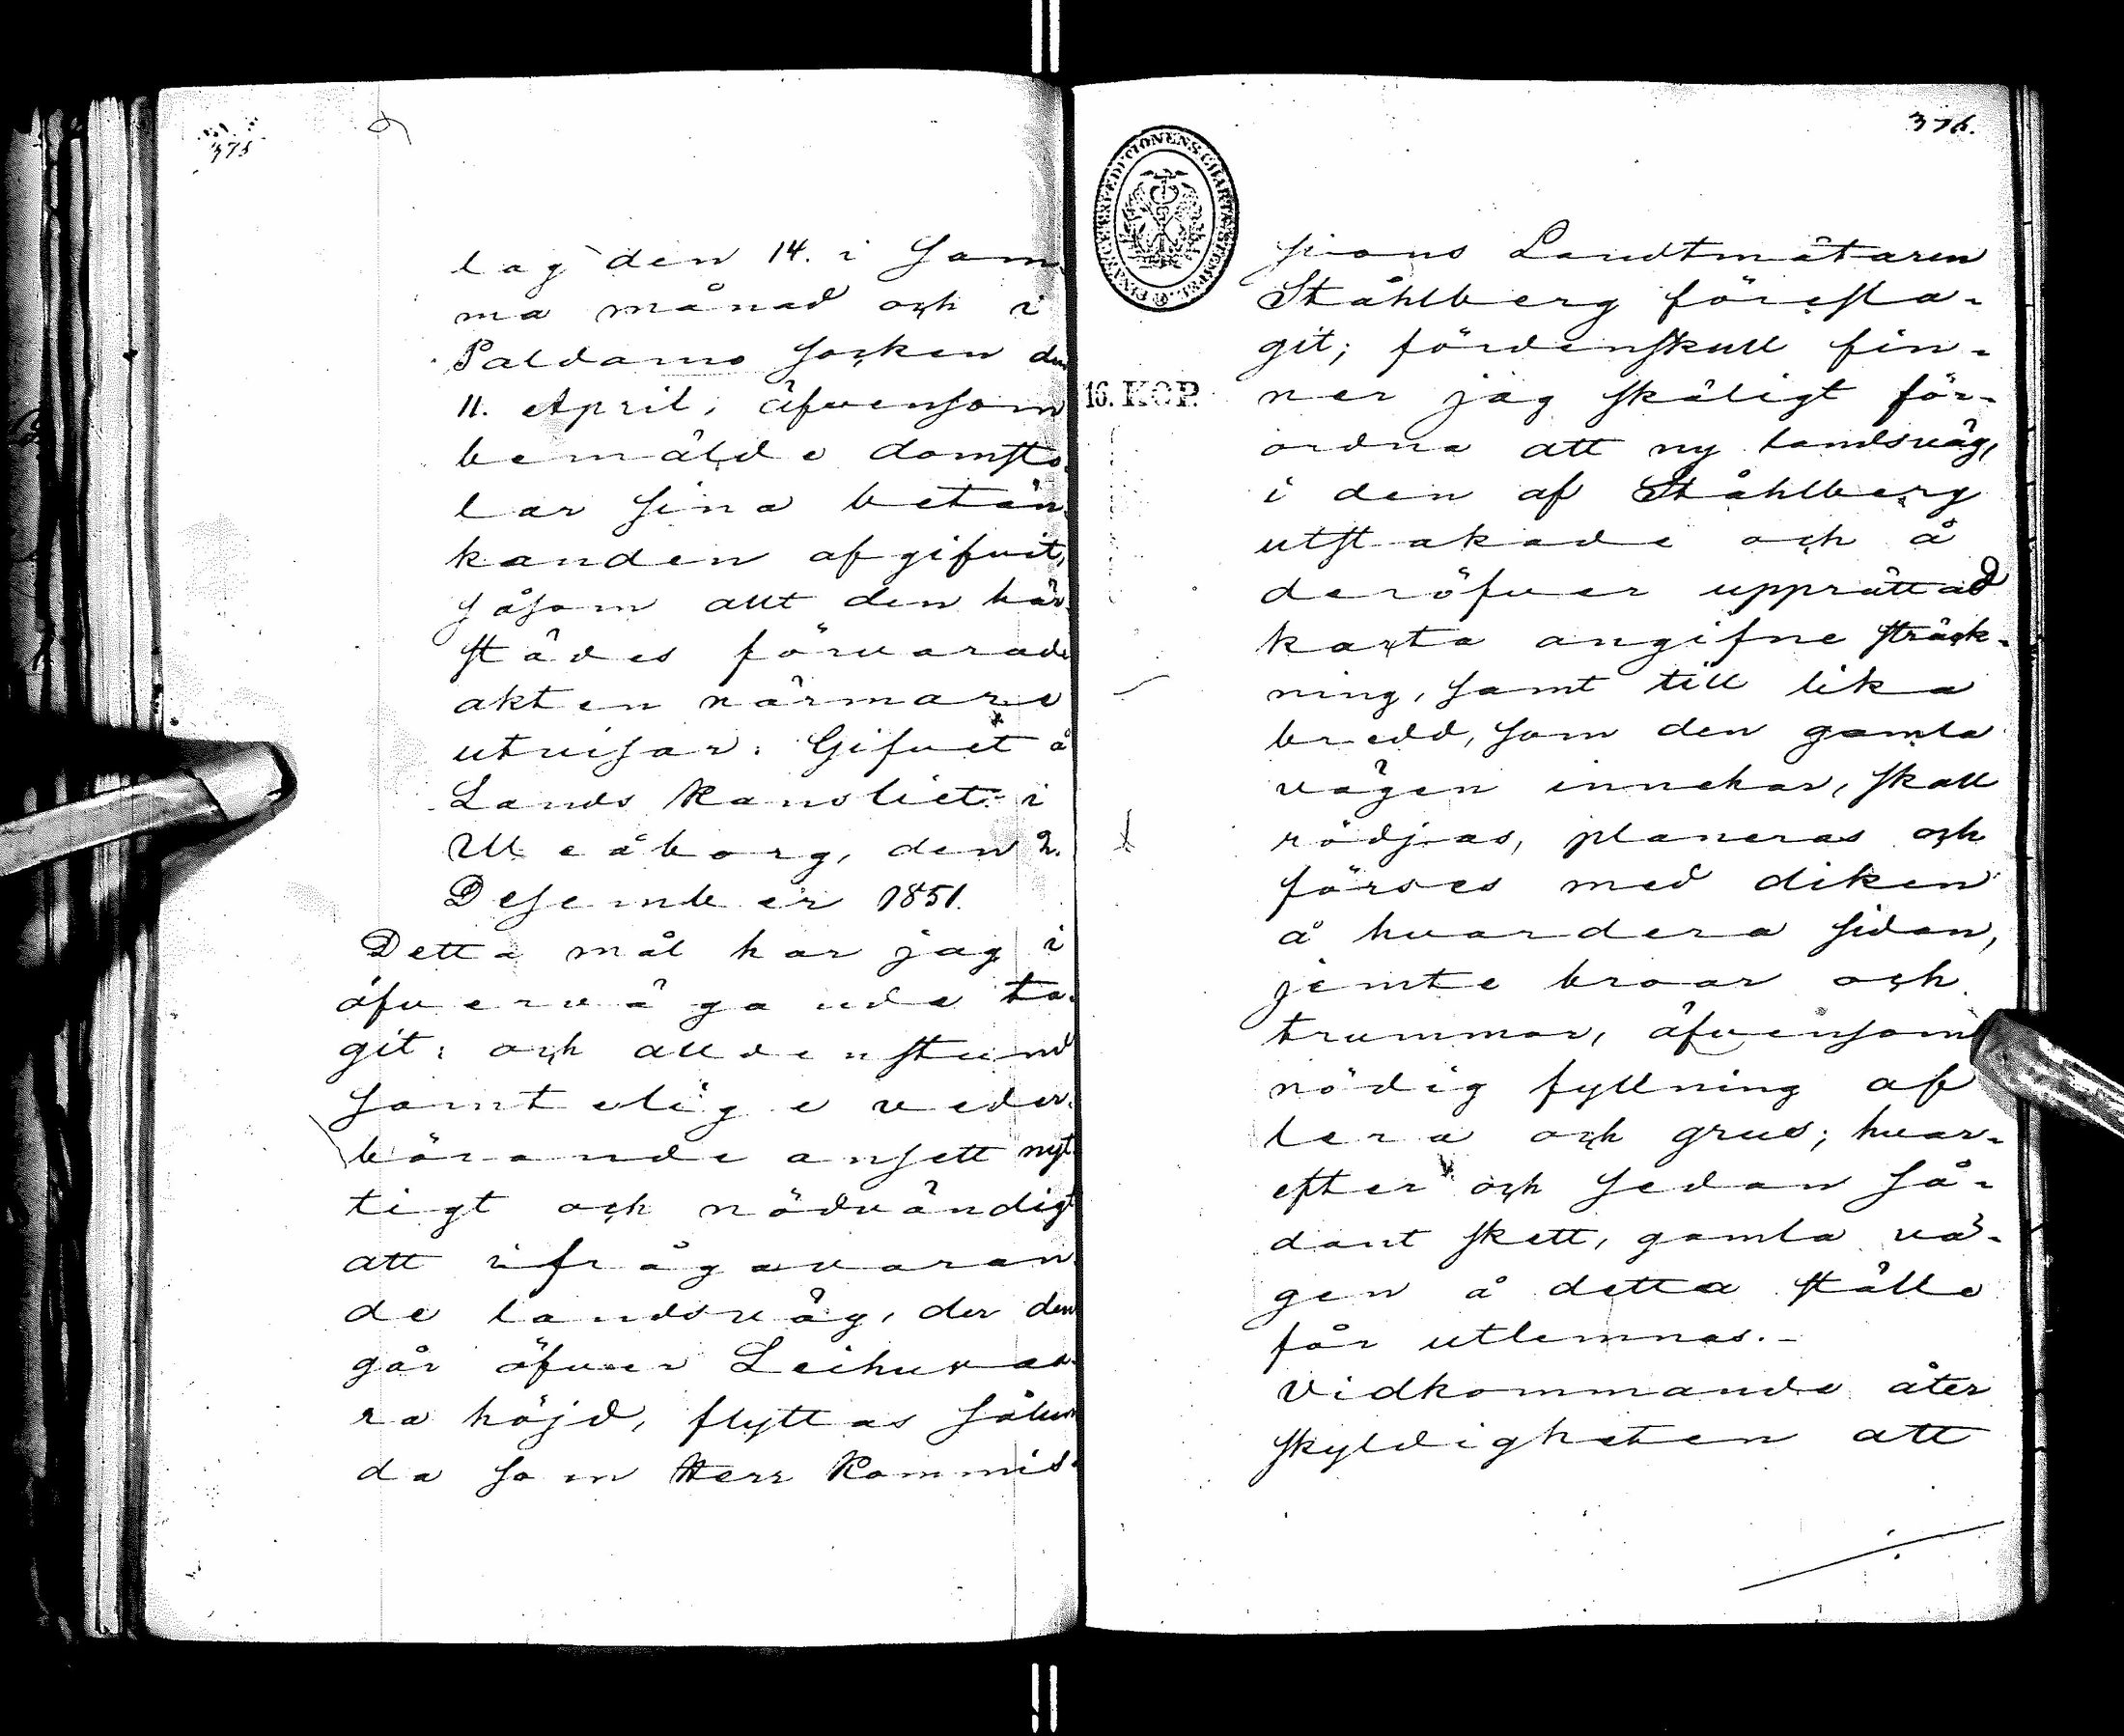 375
lag den 14. i sam-
ma månad och i
Paldamo socken den
11. April, äfvensom
bemälde domsto-
lar sina betän-
kanden afgifvit,
såsom allt den här-
städes förvarade
akten närmare
utvisar. Gifvet å
Lands Kansliet i
Uleåborg, den 2.
Desember 1851.
Detta mål har jag i
öfvervägande ta-
git; och alldenstund
samtelige veder-
börande ansett nyt-
tigt och nödvändigt
att ifrågavaran-
de landsväg, der den
går öfver Leihuvaa-
ra höjd, flyttas sålun-
da som Herr Kommis-
376.
FINANCE EXPEDITIONENS CHARTÆ STEMPEL
16. KOP.
sions Landtmätaren
Ståhlberg föresla-
git; fördenskull fin-
ner jag skäligt för-
ordna att ny landsväg,
i den af Ståhlberg
utstakade och å
deröfver upprättad
karta angifne sträck-
ning, samt till lika
bredd, som den gamla
vägen innehar, skall
rödjas, planeras och
förses med diken
å hvardera sidan,
jemte broar och
trummor, äfvensom
nödig fyllning af
lera och grus; hvar-
efter och sedan så-
dant skett, gamla vä-
gen å detta ställe
får utlemnas.-
Vidkommande åter
skyldigheten att